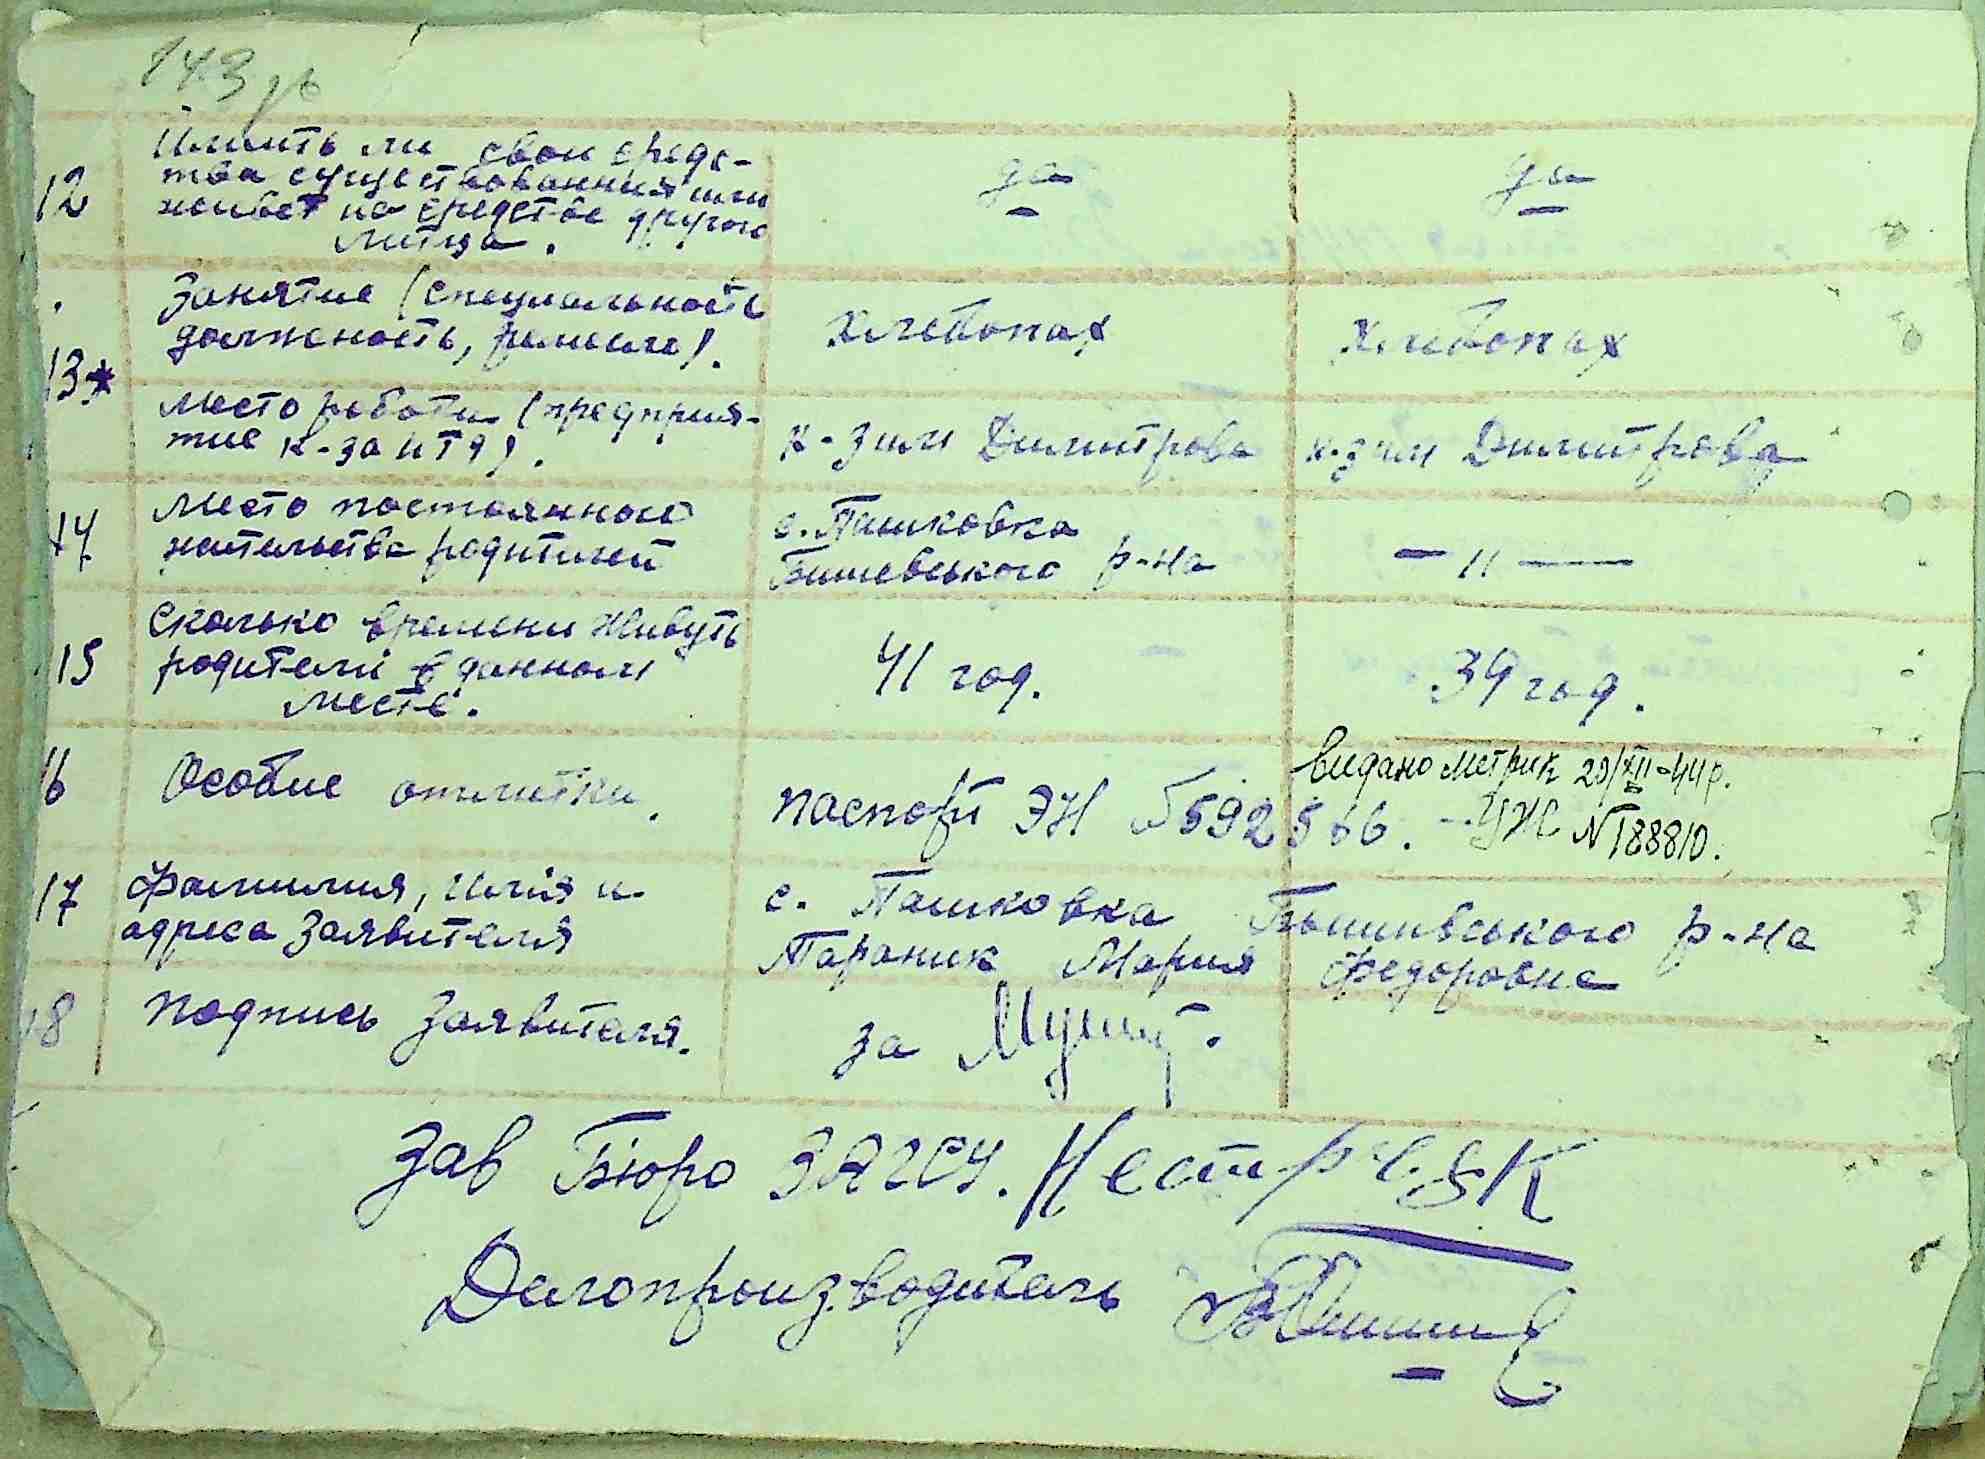 143
12
Имить ли свои средс-
тва существованния или
живет на средстве другого
литца.
да
да
13*
Занятие (специальность
должность, ремесло).
хлебопах
хлебопах
Место работи (предприя-
тие к-за и т д).
к-з им Димитрова
к-з им Димитрова
14
Место постоянного
жительства родителей
с. Пашковка
Бишевського р-на
— 11 —
15
Сколько времени живуть
родителі в данном
месте.
41 год.
39 год.
16
Особие отметки.
паспорт ЭН №592566.
видано метрик 20/XII-44р.
УЖ №188810.
17
Фамилия, имія и
адреса Заявителя
с. Пашковка Бышивського р-на
Тараник Мария Федоровна
18
Подпись Заявителя.
за
Зав Бюро ЗАГСУ.
Делопроизводитель